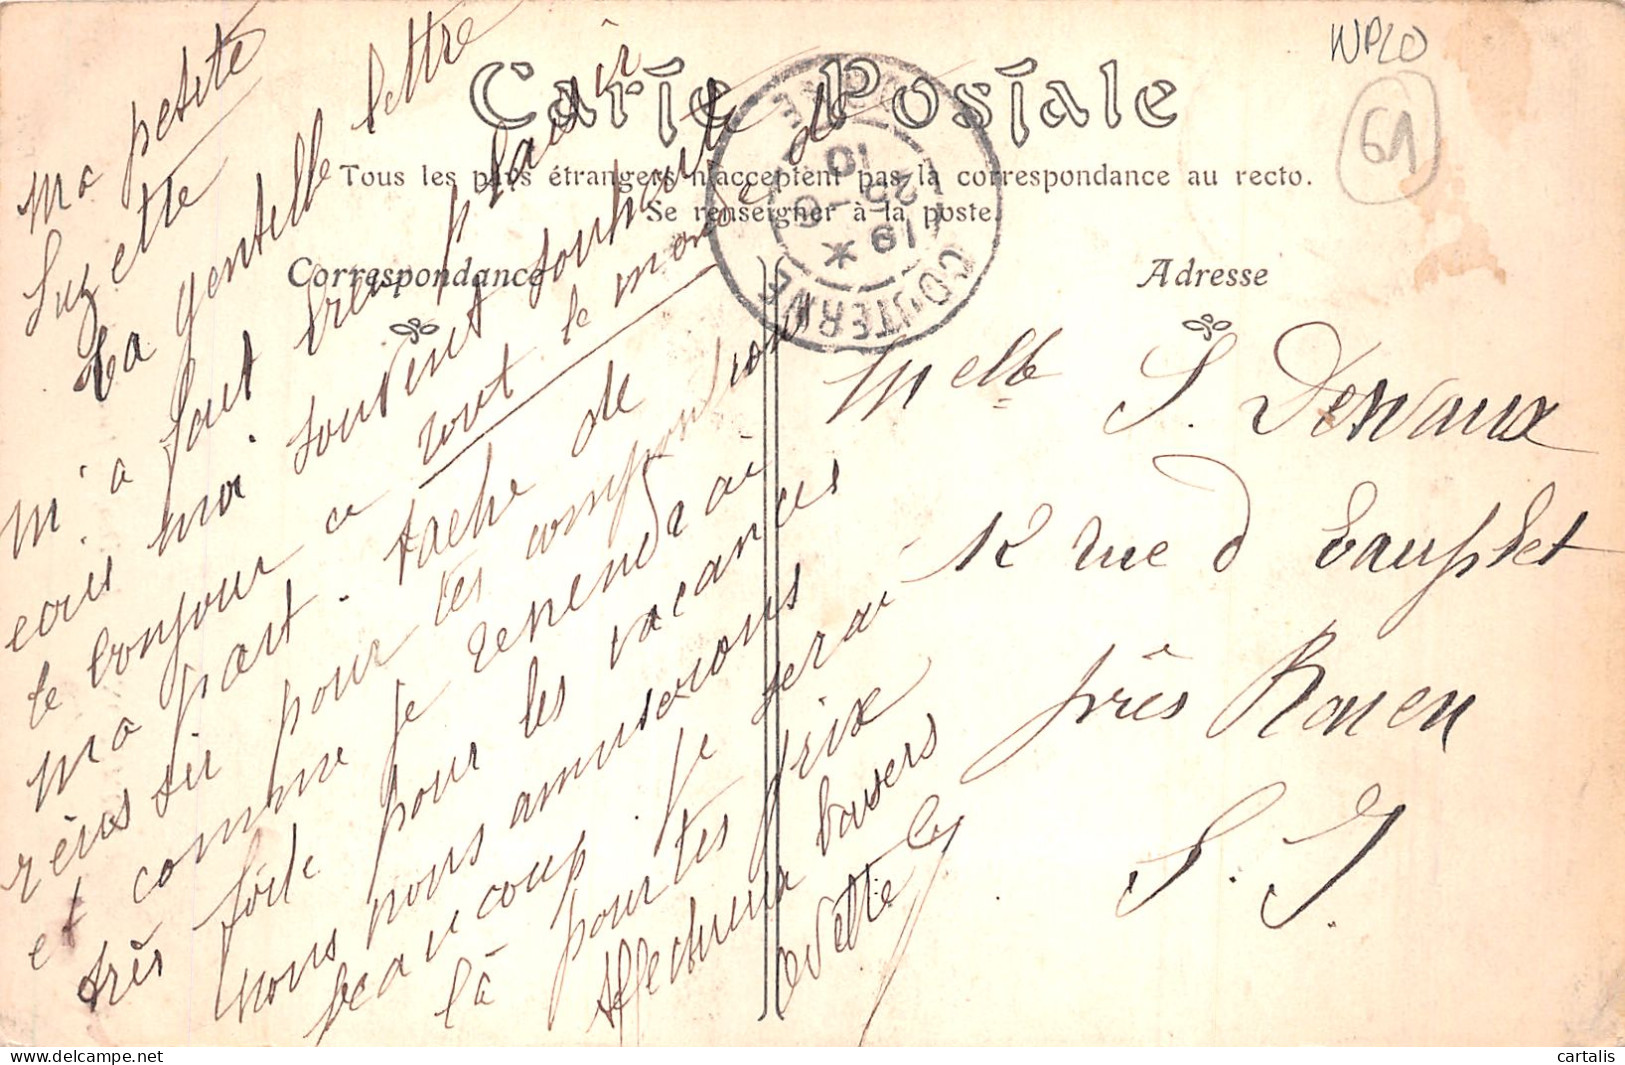 Carte Postale
Tous les pays étrangers n'acceptent pas la correspondance au recto.
Se renseigner à la poste.
Correspondance
Adresse
WPLO
61
COUTERNE
ORNE
19
25-6
10
Ma petite
Suzette
Ta gentille lettre
m'a fait bien plaisir
ecris moi souvent souhaite
le bonjour a tout le monde de
ma part. tache de
réussir pour tes composition
et comme je reviendrai
très tôt pour les vacances
nous nous amuserons
beaucoup. Je serai
là pour tes prix
Affectueux baisers
Yvette
Melle S. Dervaux
12 rue d'Eauplet
près Rouen
S. I.
cartalis